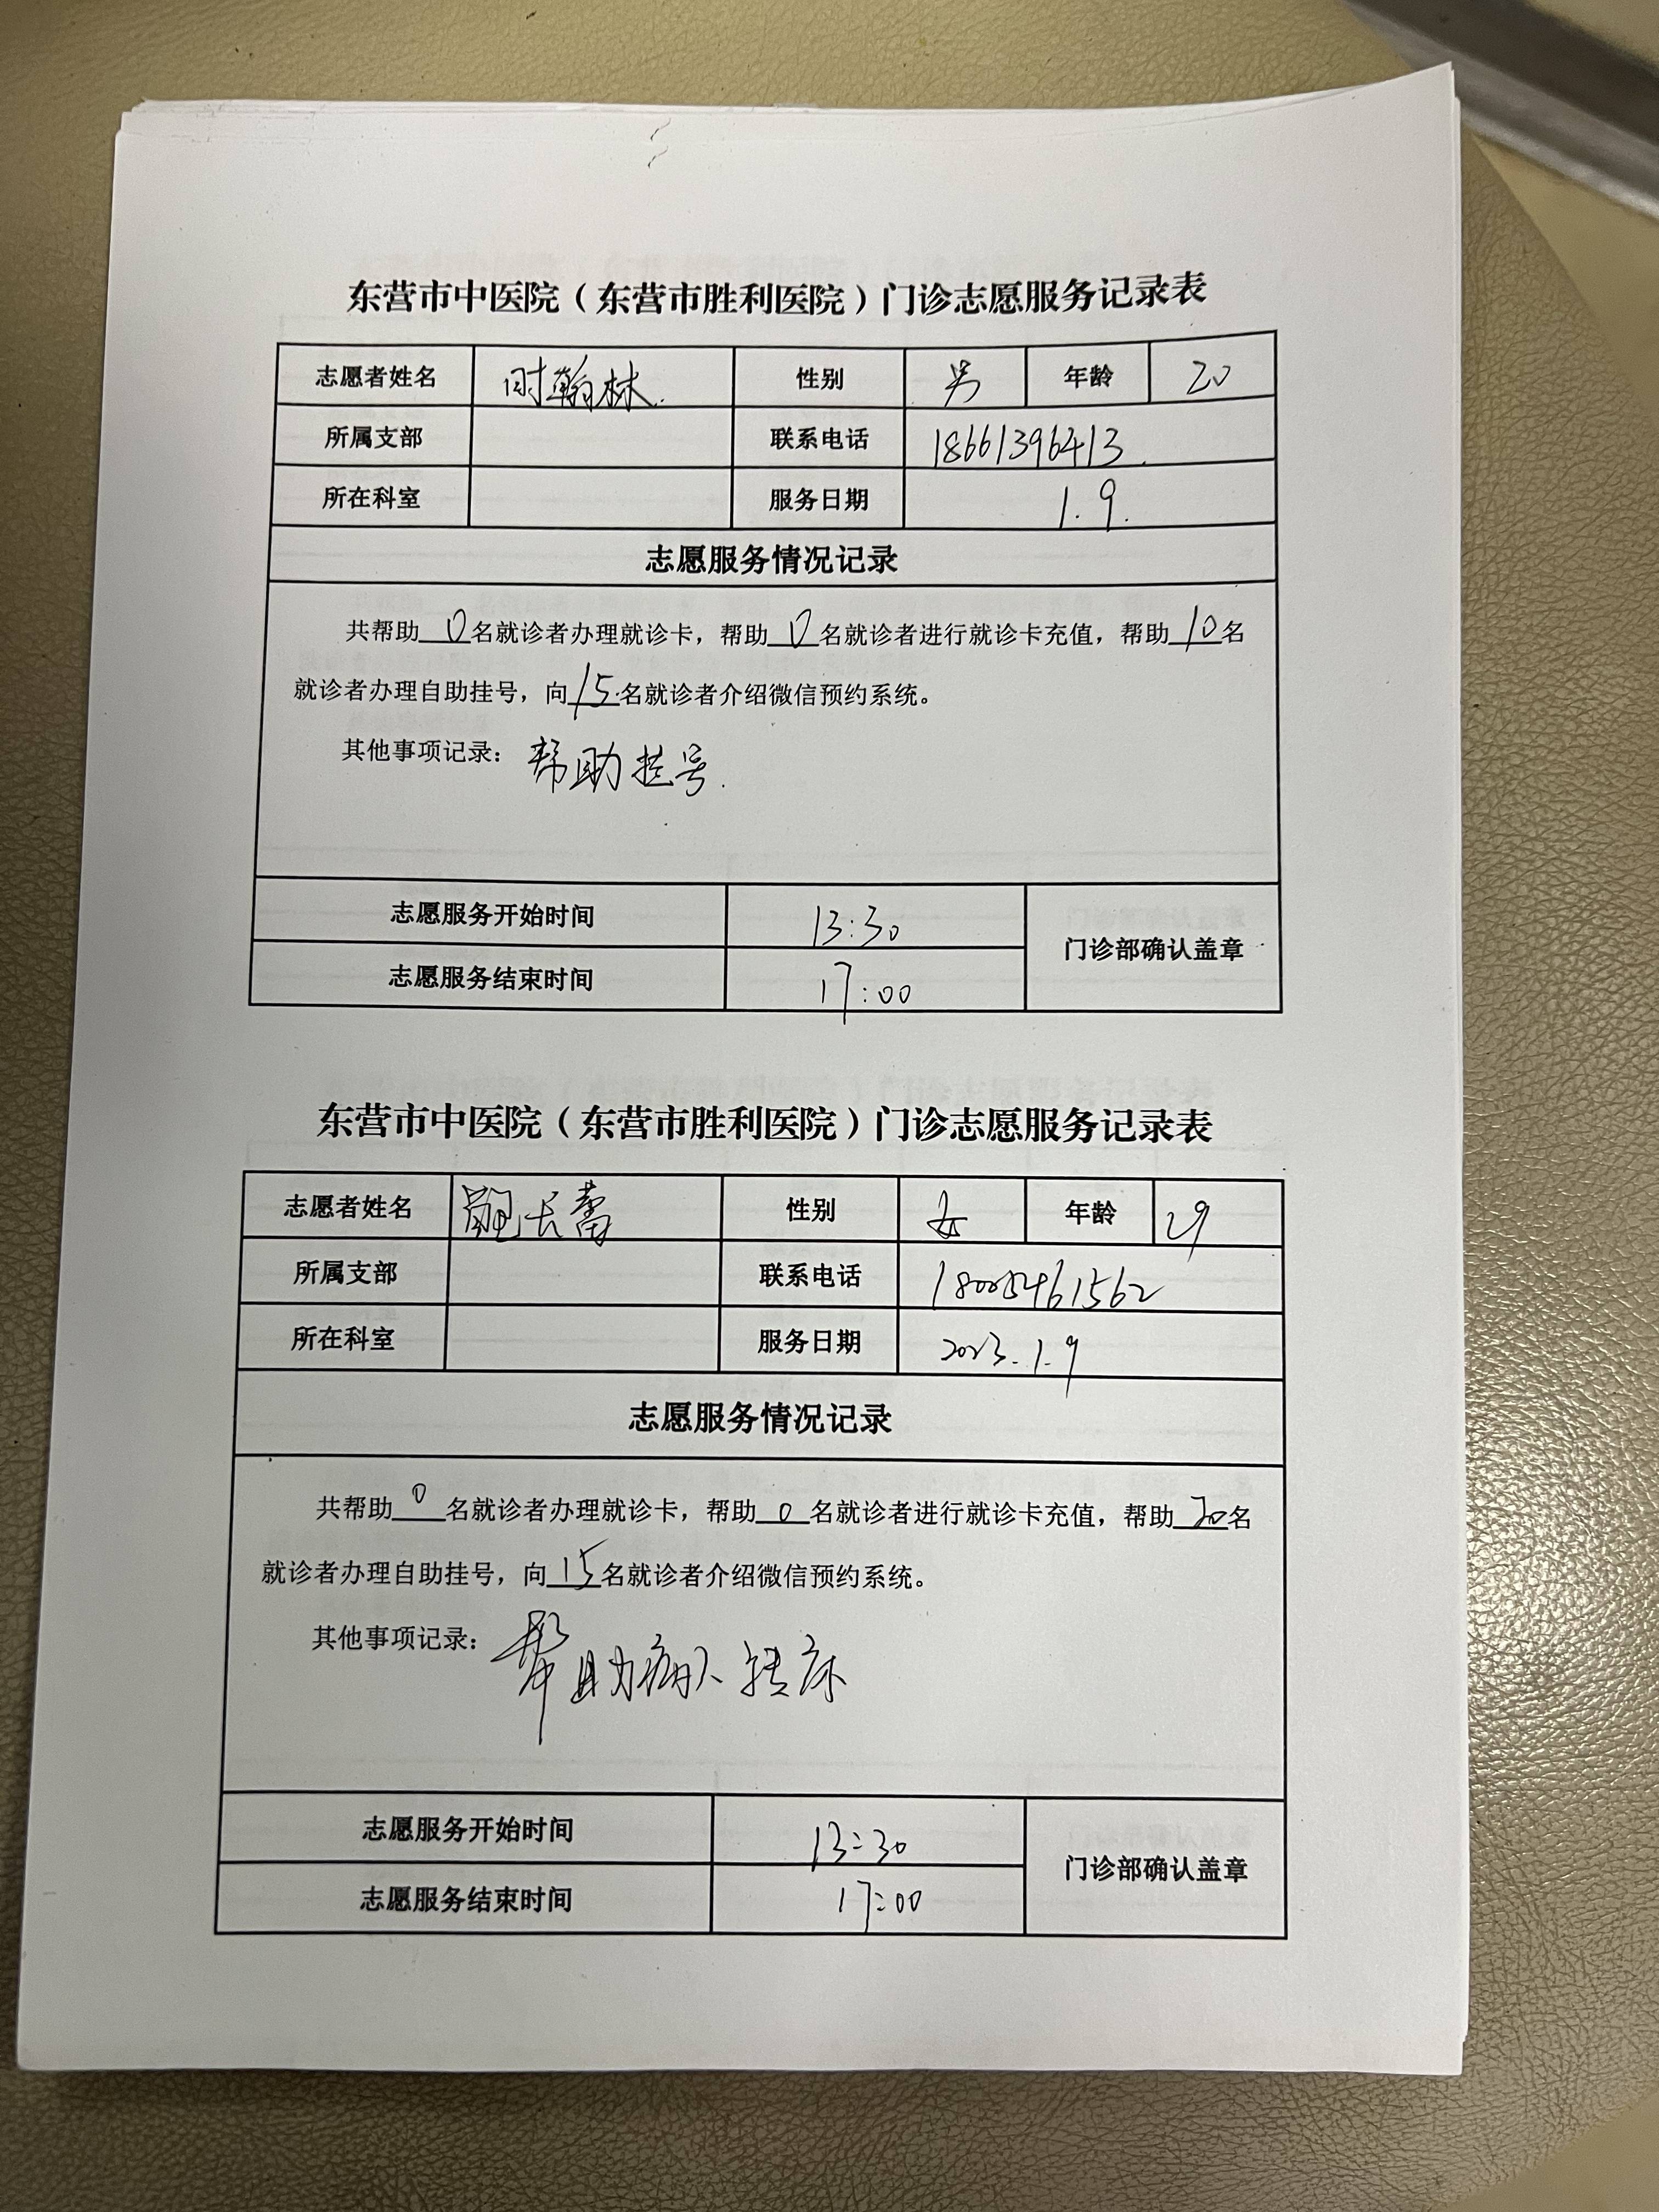 东营市中医院（东营市胜利医院）门诊志愿服务记录表
志愿者姓名 时瀚林 性别 男 年龄 20
所属支部 联系电话 18661396413
所在科室 服务日期 1.9.
志愿服务情况记录
共帮助0名就诊者办理就诊卡，帮助0名就诊者进行就诊卡充值，帮助10名
就诊者办理自助挂号，向15名就诊者介绍微信预约系统。
其他事项记录：帮助挂号.
志愿服务开始时间 13:30
门诊部确认盖章
志愿服务结束时间 17:00
东营市中医院（东营市胜利医院）门诊志愿服务记录表
志愿者姓名 长蕾 性别 女 年龄 29
所属支部 联系电话
所在科室 服务日期 2023.1.9
志愿服务情况记录
共帮助0名就诊者办理就诊卡，帮助0名就诊者进行就诊卡充值，帮助20名
就诊者办理自助挂号，向15名就诊者介绍微信预约系统。
其他事项记录：帮助病人转床
志愿服务开始时间 13:30
门诊部确认盖章
志愿服务结束时间 17:00